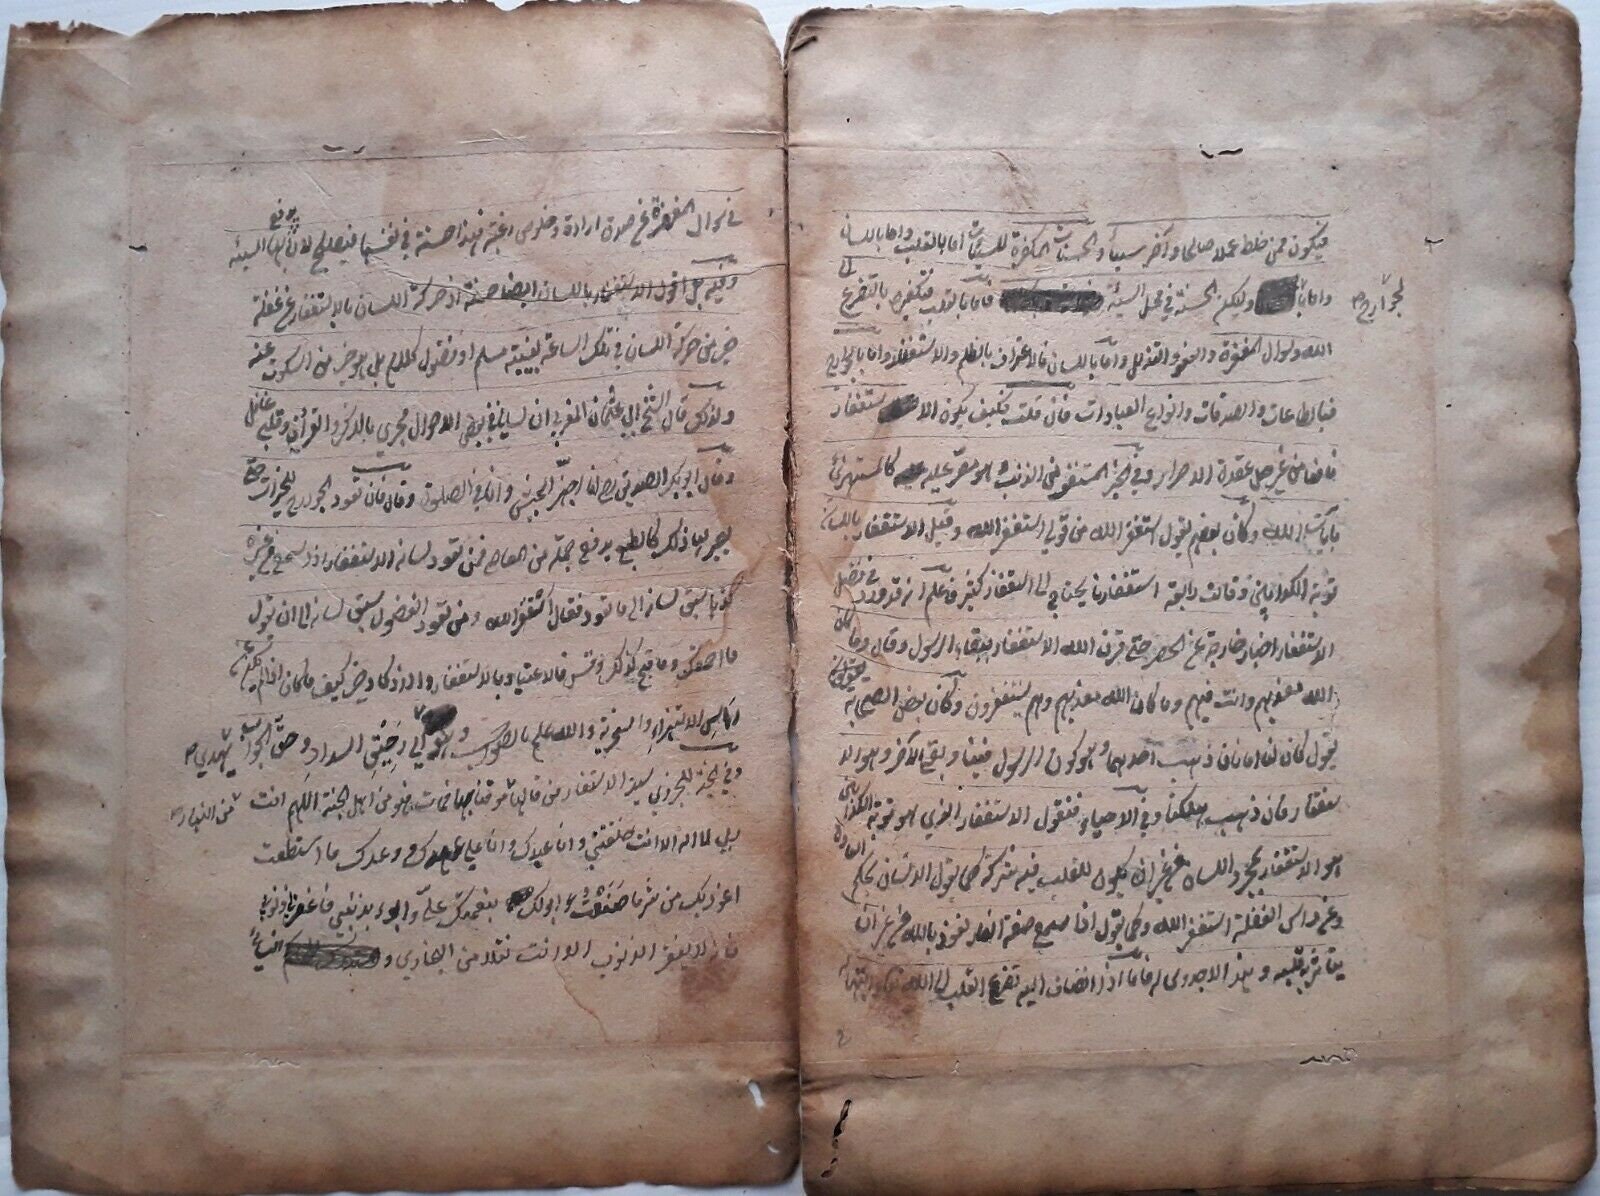 فيكون ممن خلط عملا صالحا وآخر سيئا والحسنات المكفرة للسيئات اما بالقلب واما باللسان
واما بالجوارح ولتكن الحسنة في محل السيئة فاما بالقلب فتكفيره بالتضرع الى
الله وسوال المغفرة والعفو والتذلل واما باللسان فالاعتراف بالظلم والاستغفار واما بالجوارح
فبالطاعات والصدقات وانواع العبادات فان قلت فكيف يكون الاستغفار
نافعا من غير حل عقدة الاصرار وفي الخبر المستغفر من الذنب وهو مصر عليه كالمستهزئ
بايات الله وكان بعضهم يقول استغفر الله من قولي استغفر الله وقيل الاستغفار باللسان
توبة الكذابين وقالت رابعة استغفارنا يحتاج الى استغفار كثير فاعلم انه قد ورد في فضل
الاستغفار اخبار خارجة عن الحصر حتى قرن الله الاستغفار ببقاء الرسول وقال وما كان
الله معذبهم وانت فيهم وما كان الله معذبهم وهم يستغفرون وكان بعض الصحابة
يقول كان لنا امانان ذهب احدهما وهو كون الرسول فينا وبقي الآخر وهو الا
ستغفار فان ذهب هلكنا وفي الاحياء فنقول الاستغفار الذي هو توبة الكذابين
هو الاستغفار بمجرد اللسان من غير ان يكون للقلب فيه شركة كما يقول الانسان بحكم العادة
وعن راس الغفلة استغفر الله وكما يقول اذا سمع صفة النار نعوذ بالله من غير ان
يتاثر به قلبه وهذا لا جدوى له فاما اذا انضاف اليه تضرع القلب الى الله وابتهاله
في سوال المغفرة عن صدق ارادة وخلوص رغبة فهذا حسنة في نفسها فيصلح لان يدفع بها السيئة
وفيه بل اقول الاستغفار باللسان ايضا حسنة اذ حركة اللسان بالاستغفار عن غفلة
خير من حركة اللسان في تلك الساعة بغيبة مسلم او فضول كلام بل هو خير من السكوت عنه
ولذلك قال الشيخ ابي عثمان المغربي ان لساني في بعض الاحوال يجري بالذكر والقرآن وقلبي غافل
وقال ابو بكر الصديق رض انا اجهز الجيش وانا في الصلوة وقال فان تعود الجوارح للخيرات حتى
يصير لها ذلك كالطبع يدفع جملة من المعاصي فمن تعود لسانه الاستغفار اذا سمع من غيره
كذبا سبق لسانه الى ما تعود فقال استغفر الله ومن تعود الفضول سبق لسانه الى ان يقول
ما احمقك وما اقبح كذبك
والله اعلم بالصواب
سيد الاستغفار من قالها موقنا بها فمات فهو من اهل الجنة اللهم انت
ربي لا اله الا انت خلقتني وانا عبدك وانا على عهدك ووعدك ما استطعت
اعوذ بك من شر ما صنعت وابوء لك بنعمتك علي وابوء بذنبي فاغفر لي ذنوبي
فانه لا يغفر الذنوب الا انت نقلا من البخاري و